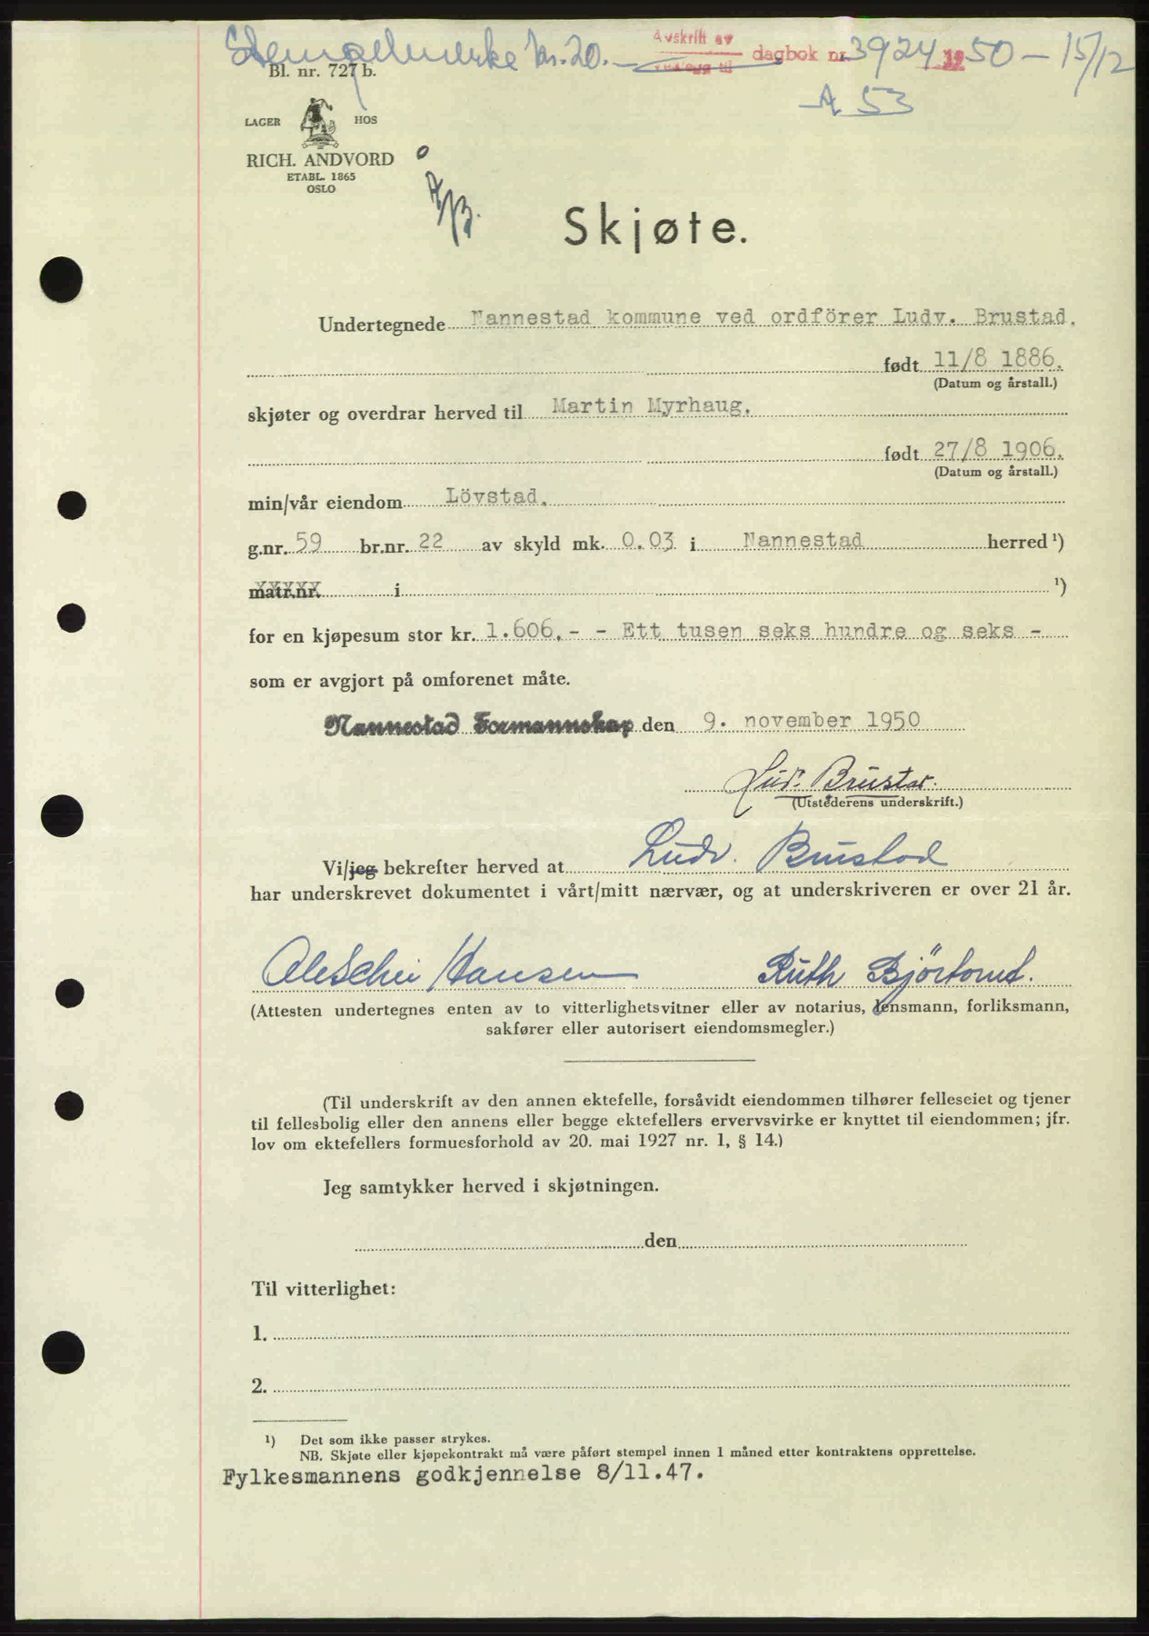 Stempelmerke kr. 20. — Avskrift av dagbok nr. 3924 1950 — 15/12
Bl. nr. 727 b.
A 53
LAGER HOS
RICH. ANDVORD
ETABL. 1865
OSLO
Skjøte.
Undertegnede Nannestad kommune ved ordförer Ludv. Brustad.
født 11/8 1886.
(Datum og årstall.)
skjøter og overdrar herved til Martin Myrhaug.
født 27/8 1906.
(Datum og årstall.)
min/vår eiendom Lövstad.
g.nr. 59 br.nr. 22 av skyld mk. 0.03 i Nannestad herred ¹)
matr.nr. i ¹)
for en kjøpesum stor kr. 1.606.- - Ett tusen seks hundre og seks -
som er avgjort på omforenet måte.
Nannestad Formannskap den 9. november 1950
Ludv. Brustad.
(Utstederens underskrift.)
Vi/jeg bekrefter herved at Ludv. Brustad
har underskrevet dokumentet i vårt/mitt nærvær, og at underskriveren er over 21 år.
Hansen Ruth
(Attesten undertegnes enten av to vitterlighetsvitner eller av notarius, lensmann, forliksmann,
sakfører eller autorisert eiendomsmegler.)
(Til underskrift av den annen ektefelle, forsåvidt eiendommen tilhører felleseiet og tjener
til fellesbolig eller den annens eller begge ektefellers ervervsvirke er knyttet til eiendommen; jfr.
lov om ektefellers formuesforhold av 20. mai 1927 nr. 1, § 14.)
Jeg samtykker herved i skjøtningen.
den
Til vitterlighet:
1.
2.
¹) Det som ikke passer strykes.
NB. Skjøte eller kjøpekontrakt må være påført stempel innen 1 måned etter kontraktens opprettelse.
Fylkesmannens godkjennelse 8/11.47.